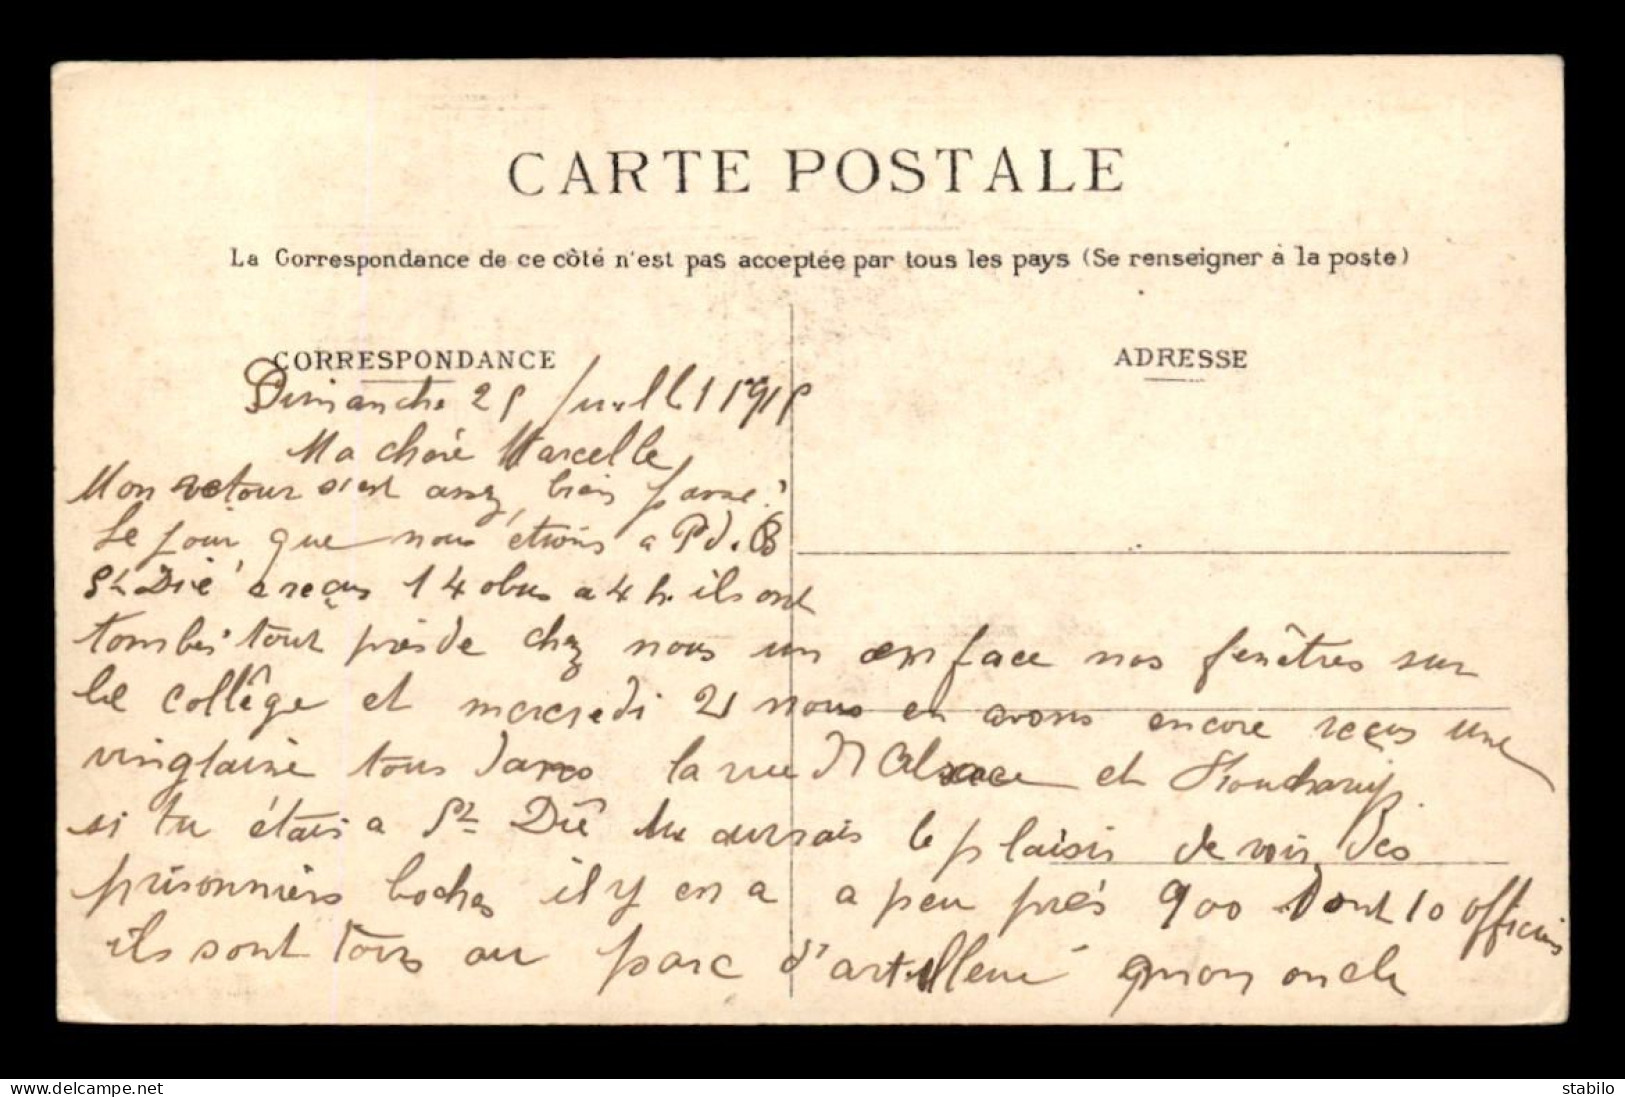 CARTE POSTALE
La Correspondance de ce côté n'est pas acceptée par tous les pays (Se renseigner à la poste)
CORRESPONDANCE
ADRESSE
Dimanche 25 Juillet 1915
Ma chère Marcelle
Mon retour s'est assez bien passé.
Le jour que nous étions a P.d.B
St Dié a reçus 14 obus a 4 h. ils ont
tombés tout près de chez nous un en face nos fenêtres sur
le collège et mercredi 21 nous en avons encore reçus une
vingtaine tous dans la rue d'Alsace et
si tu étais a St Dié tu aurais le plaisir de voir des
prisonniers boches il y en a a peu près 900 dont 10 officiers
ils sont tous au parc d'artillerie mon oncle
www.delcampe.net
stabilo